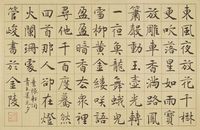 東風夜放花千樹
更吹落星如雨寶
馬雕車香滿路鳳
簫聲動玉壺光轉
一夜魚龍舞蛾兒
雪柳黃金縷笑語
盈盈暗香去衆裏
尋他千百度驀然
回首那人却在燈
火闌珊處
管峻書於金陵